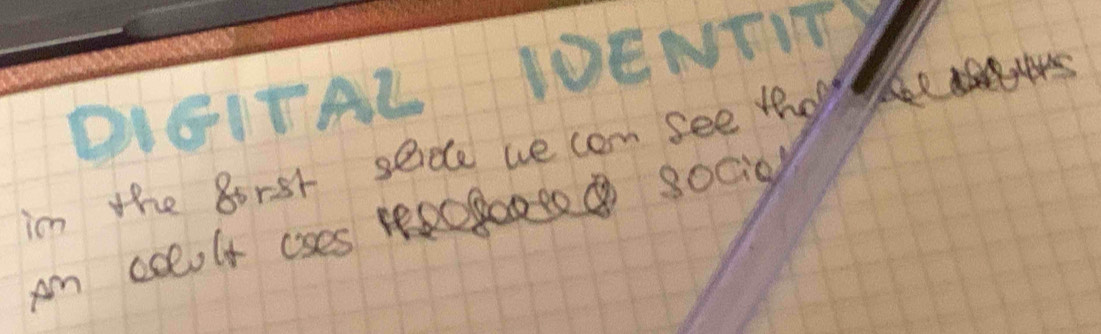 DIGITAL IDENTITY
in the first slide we can see that
an adult uses social